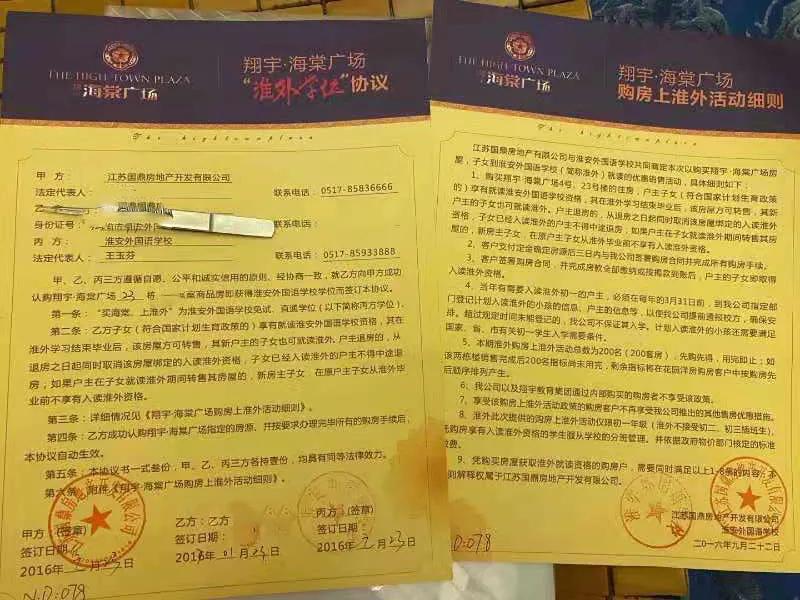 THE HIGH TOWN PLAZA
海棠广场
翔宇·海棠广场
“淮外学位”协议
甲 方： 江苏国鼎房地产开发有限公司
法定代表人： 联系电话：0517-85836666
身份证号： 联系电话：
丙 方： 淮安外国语学校
法定代表人： 王玉芬 联系电话：0517-85933888
甲、乙、丙三方遵循自愿、公平和诚实信用的原则，经协商一致，就乙方向甲方成功
认购翔宇·海棠广场 23 栋 商品房即获得淮安外国语学校学位而签订本协议。
第一条：“买海棠，上淮外”为淮安外国语学校免试、直遴学位（以下简称丙方学位）。
第二条：乙方子女（符合国家计划生育政策的）享有就读淮安外国语学校资格，其在
淮外学习结束毕业后，该房屋方可转售，其新户主之子女也可就读淮外。户主退房的，从
退房之日起同时取消该房屋绑定的入读淮外资格，子女已经入读淮外的户主不得中途退
房；如果户主在子女就读淮外期间转售其房屋的，新房主子女，在原户主子女从淮外毕
业前不享有入读淮外资格。
第三条：详细情况见《翔宇·海棠广场购房上淮外活动细则》。
第四条：乙方成功认购翔宇·海棠广场指定的房源，并按要求办理完毕所有的购房手续后，
本协议自动生效。
第五条：本协议书一式叁份，甲、乙、丙三方各持壹份，均具有同等法律效力。
第六条：附件《翔宇·海棠广场购房上淮外活动细则》。
甲方：（签章） 乙方：乙方 丙方：（签章）
签订日期 签订日期： 签订日期：
2016年 月23日 2016年01月23日 2016年 月23日
N.D:078
THE HIGH TOWN PLAZA
海棠广场
翔宇·海棠广场
购房上淮外活动细则
江苏国鼎房地产有限公司与淮安外国语学校共同商定本次以购买翔宇·海棠广场房
屋，子女到淮安外国语学校（简称淮外）就读的优惠销售活动，具体细则如下：
1、购买翔宇·海棠广场4号、23号楼的住房，户主子女（符合国家计划生育政策
的）享有就读淮安外国语学校资格，其在淮外学习结束毕业后，该房屋方可转售，其新
户主之子女也可就读淮外。户主退房的，从退房之日起同时取消该房屋绑定的入读淮外
资格，子女已经入读淮外的户主不得中途退房，如果户主在子女就读淮外期间转售其房
屋的，新房主子女，在原户主子女从淮外毕业前不享有入读淮外资格。
2、客户支付定金确定房源后三日内与我公司签署购房合同并完成所有购房手续。
3、客户签署购房合同，并完成房款全部缴纳或按揭款到账后，户主的子女即取得
入读淮外资格。
4、当年有需要入读淮外初一的户主，必须在每年的3月31日前，到我公司指定部
门登记计划入读淮外的小孩的信息、户主的信息等，以便我公司提前通报校方，确保安
排。超过规定时间未能登记的，我公司不保证其入学。计划入读淮外的小孩还需要满足
国家、省、市有关初一学生入学需要条件。
5、本期淮外购房上淮外活动总数为200名（200套房），先购先得，用完即止；如
该两栋楼销售完成后200名指标尚未用完，剩余指标将在花园洋房购房客户中按购房先
后顺序排列产生。
6、我公司以及翔宇教育集团通过内部购买的购房者不享受该政策。
7、享受该购房上淮外活动政策的购房客户不再享受我公司推出的其他售房优惠措施。
8、淮外此次提供的购房上淮外活动仅限初一年级（淮外不接受初二、初三插班生），
凭购房享有入读淮外资格的学生服从学校的分班管理，并依据政府物价部门核定的标准
费。
9、凭购买房屋获取淮外就读资格的购房户，需要同时满足以上1-8条的内容。
则解释权属于江苏国鼎房地产开发有限公司。
江苏国鼎房地产开发有限公司
淮安外国语学校
二〇一六年九月二十二日
D:078